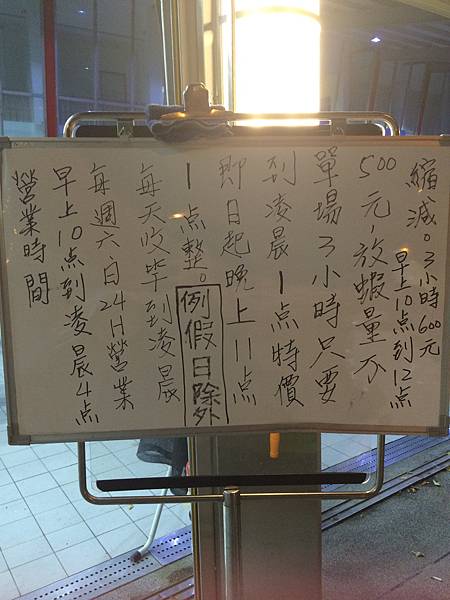 營業時間
早上10点到凌晨4点
每週六、日24H營業
每天收竿到凌晨
1点整。例假日除外
即日起晚上11点
到凌晨1点特價
單場3小時只要
500元,放蝦量不
縮減。3小時600元
早上10点到12点